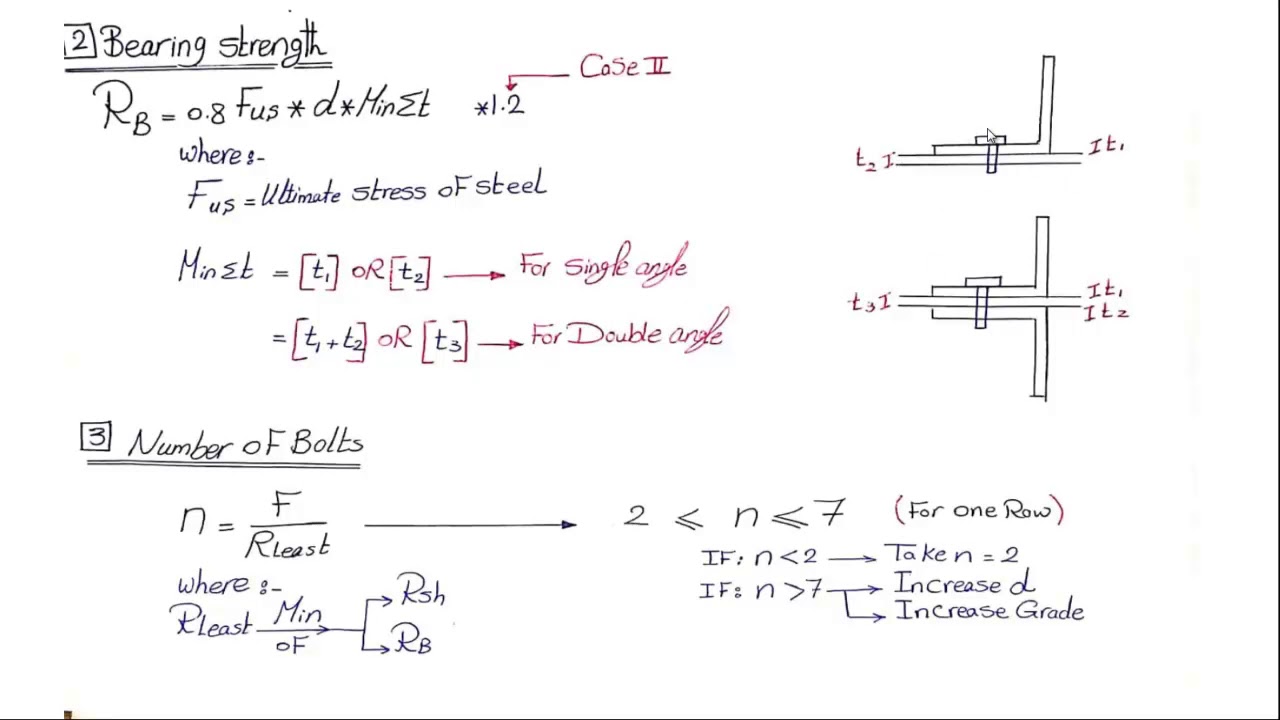 2 Bearing strength
Case II
RB = 0.8 Fus * d * Min Σt *1.2
where:-
Fus = Ultimate stress of steel
Min Σt = [t1] OR [t2] → For single angle
= [t1 + t2] OR [t3] → For Double angle
t2 I
I t1
t3 I
I t1
I t2
3 Number of Bolts
n = F / RLeast → 2 ≤ n ≤ 7 (For one Row)
IF: n < 2 → Take n = 2
where :-
IF: n > 7 → Increase d
→ Increase Grade
RLeast Min of → Rsh
→ RB